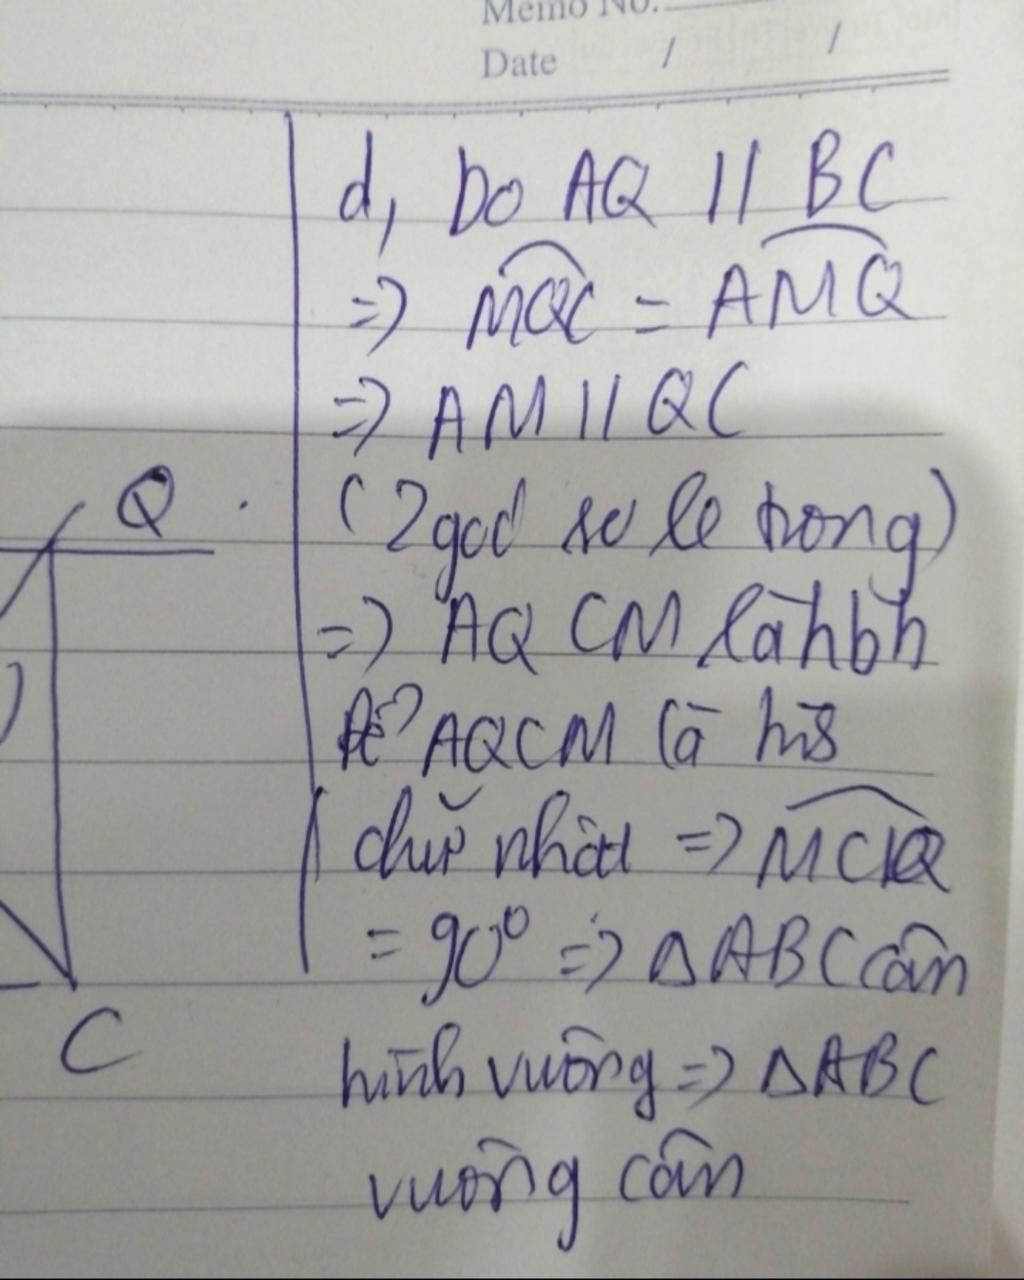 Memo No.
Date / /
d, Do AQ // BC
=> MQC = AMQ
=> AM // QC
(2 góc so le trong)
=> AQ CM là hbh
Để AQCM là hĩs
chữ nhật => MCQ
= 90° => ΔABC cân
hình vuông => ΔABC
vuông cân
Q
C